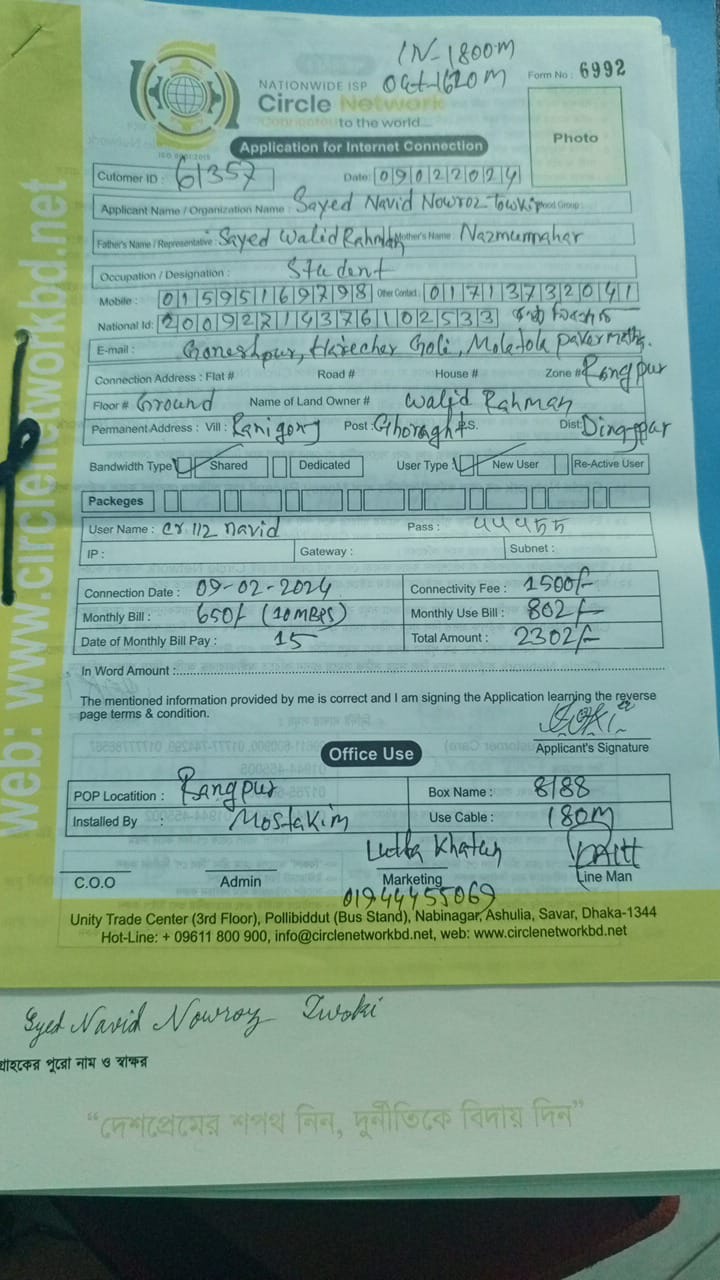 IN-1800m
Out-1620m
Form No: 6992
NATIONWIDE ISP
Circle Network
Connected to the world....
ISO 9001:2015
Photo
Application for Internet Connection
Cutomer ID: 61357 Date: 09022024
Applicant Name / Organization Name: Sayed Navid Nowroz Towkip Blood Group:
Father's Name / Representative: Sayed Walid Rahman Mother's Name: Nazmunnahar
Occupation / Designation: Student
Mobile: 01595169798 Other Contact: 01713732041
National Id: 20092714376102533
E-mail: Goneshpur, Harecher Goli, Moletola
Connection Address: Flat # Road # House # Zone # Rangpur
Floor # Ground Name of Land Owner # Walid Rahman
Permanent Address: Vill: Ranigong Post: Ghoraght P.S. Dist: Dinajpur
Bandwidth Type Shared Dedicated User Type New User Re-Active User
Packeges
User Name: cr.112 navid Pass: 44455
IP: Gateway: Subnet:
Connection Date: 09-02-2024 Connectivity Fee: 1500/-
Monthly Bill: 650/- (10MBPS) Monthly Use Bill: 802/-
Date of Monthly Bill Pay: 15 Total Amount: 2302/-
In Word Amount:
The mentioned information provided by me is correct and I am signing the Application learning the reverse
page terms & condition.
Applicant's Signature
Office Use
POP Locatition: Rangpur Box Name: 8188
Installed By: Mostakim Use Cable: 180M
Khatun
C.O.O Admin Marketing Line Man
01944455069
Unity Trade Center (3rd Floor), Pollibiddut (Bus Stand), Nabinagar, Ashulia, Savar, Dhaka-1344
Hot-Line: + 09611 800 900, info@circlenetworkbd.net, web: www.circlenetworkbd.net
web: www.circlenetworkbd.net
Syed Navid Nowroz Twoki
গ্রাহকের পুরো নাম ও স্বাক্ষর
“দেশপ্রেমের শপথ নিন, দুর্নীতিকে বিদায় দিন”